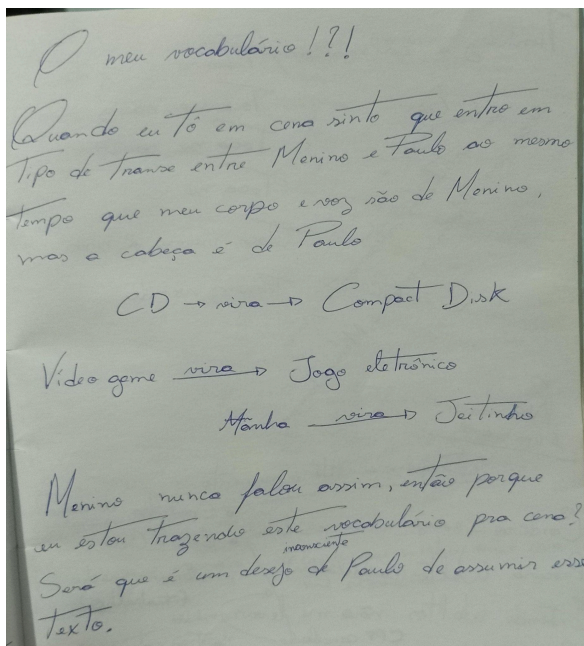 O meu vocabulário!?!
Quando eu tô em cena sinto que entro em
Tipo de transe entre Menino e Paulo ao mesmo
tempo que meu corpo e voz são de Menino,
mas a cabeça é de Paulo
CD → vira → Compact Disk
Vídeo game vira → Jogo eletrônico
Manha vira → Jeitinho
Menino nunca falou assim, então porque
eu estou trazendo este vocabulário pra cena?
inconsciente
Será que é um desejo de Paulo de assumir esse
texto.